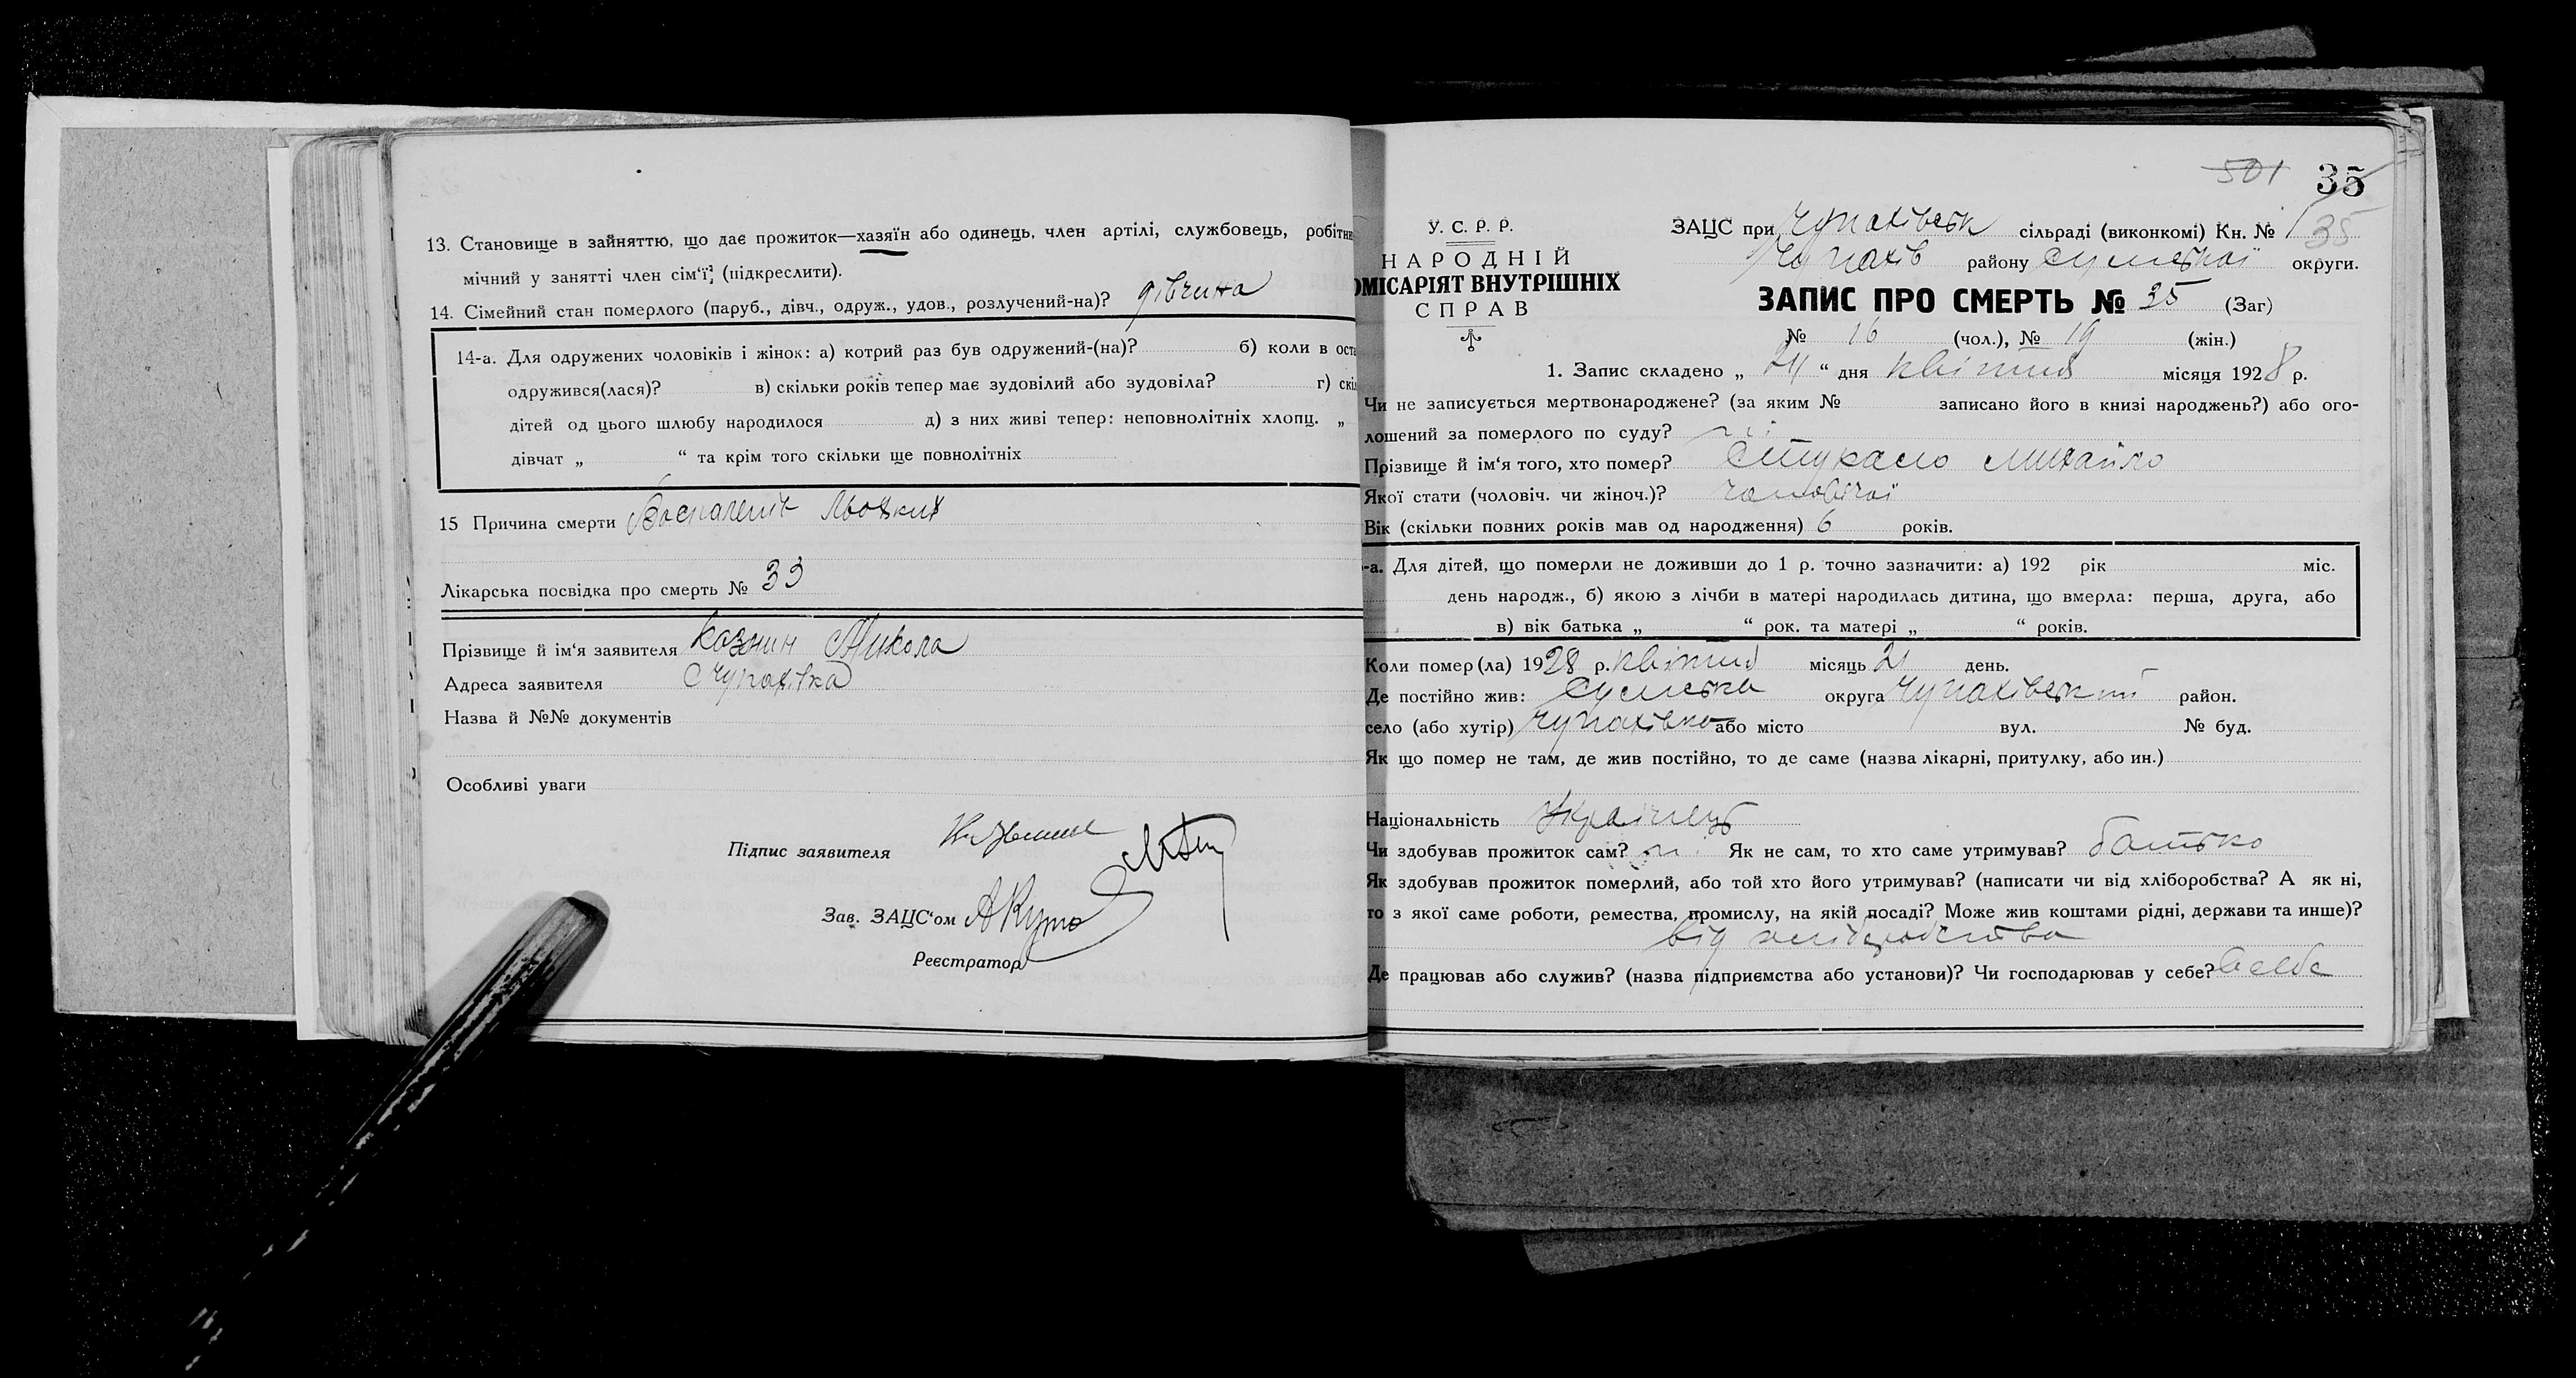 13. Становище в зайняттю, що дає прожиток—хазяїн або одинець, член артілі, службовець, робітн
мічний у занятті член сім'ї, (підкреслити).
14. Сімейний стан померлого (паруб., дівч., одруж., удов., розлучений-на)? дівчина
14-а. Для одружених чоловіків і жінок: а) котрий раз був одружений-(на)? б) коли в ост
одружився(лася)? в) скільки років тепер має зудовілий або зудовіла? г) скі
дітей од цього шлюбу народилося д) з них живі тепер: неповнолітніх хлопц. „
дівчат „ “ та крім того скільки ще повнолітніх
15 Причина смерти
Лікарська посвідка про смерть № 33
Прізвище й ім'я заявителя Микола
Адреса заявителя Чупахівка
Назва й №№ документів
Особливі уваги
Підпис заявителя
Зав. ЗАЦС'ом
Реєстратор
501 35
У. С. Р. Р.
НАРОДНІЙ
ОМІСАРІЯТ ВНУТРІШНІХ
СПРАВ
ЗАЦС при Чупахівськ сільраді (виконкомі) Кн. № 1 35
Чупахів району Сумської округи.
ЗАПИС ПРО СМЕРТЬ № 35 (Заг)
№ 16 (чол.), № 19 (жін.)
1. Запис складено „ “ дня квітня місяця 1928 р.
Чи не записується мертвонароджене? (за яким № записано його в книзі народжень?) або ого-
лошений за померлого по суду? ні
Прізвище й ім'я того, хто помер? Михайло
Якої стати (чоловіч. чи жіноч.)? чоловічої
Вік (скільки повних років мав од народження) 6 років.
-а. Для дітей, що померли не доживши до 1 р. точно зазначити: а) 192 рік міс.
день народж., б) якою з лічби в матері народилась дитина, що вмерла: перша, друга, або
в) вік батька „ “ рок. та матері „ “ років.
Коли помер(ла) 1928 р. квітня місяць 21 день.
Де постійно жив: Сумська округа Чупахівський район.
село (або хутір) Чупахівка або місто вул. № буд.
Як що помер не там, де жив постійно, то де саме (назва лікарні, притулку, або ин.)
Національність Українець
Чи здобував прожиток сам? ні Як не сам, то хто саме утримував? батько
Як здобував прожиток померлий, або той хто його утримував? (написати чи від хліборобства? А як ні,
то з якої саме роботи, ремества, промислу, на якій посаді? Може жив коштами рідні, держави та инше)?
від хліборобства
Де працював або служив? (назва підприємства або установи)? Чи господарював у себе? в себе